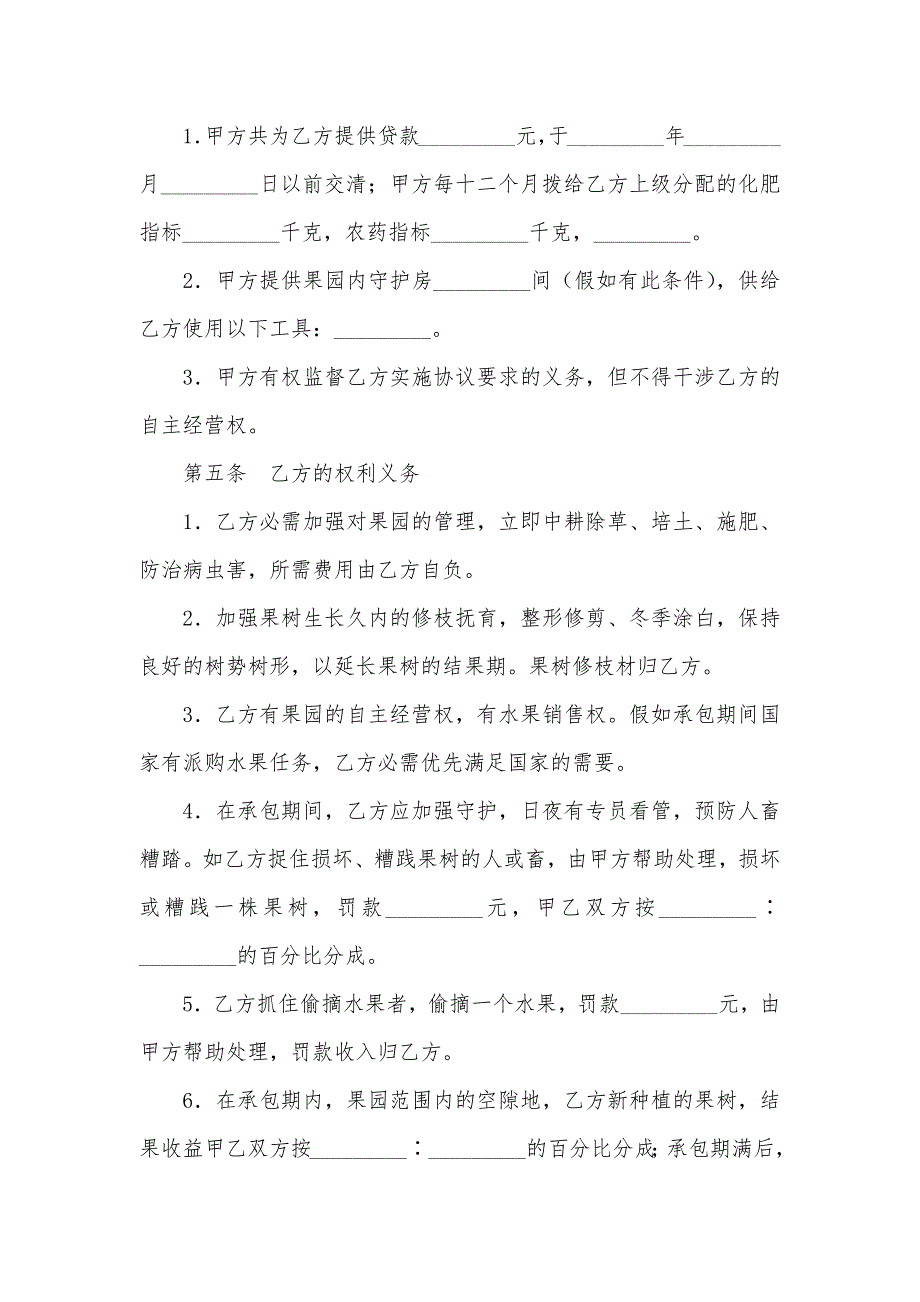 1.甲方共为乙方提供贷款_________元,于_________年_________
月_________日以前交清；甲方每十二个月拨给乙方上级分配的化肥
指标_________千克，农药指标_________千克，_________。
2．甲方提供果园内守护房_________间（假如有此条件），供给
乙方使用以下工具：_________。
3．甲方有权监督乙方实施协议要求的义务，但不得干涉乙方的
自主经营权。
第五条　乙方的权利义务
1．乙方必需加强对果园的管理，立即中耕除草、培土、施肥、
防治病虫害，所需费用由乙方自负。
2．加强果树生长久内的修枝抚育，整形修剪、冬季涂白，保持
良好的树势树形，以延长果树的结果期。果树修枝材归乙方。
3．乙方有果园的自主经营权，有水果销售权。假如承包期间国
家有派购水果任务，乙方必需优先满足国家的需要。
4．在承包期间，乙方应加强守护，日夜有专员看管，预防人畜
糟踏。如乙方捉住损坏、糟践果树的人或畜，由甲方帮助处理，损坏
或糟践一株果树，罚款_________元，甲乙双方按_________∶
_________的百分比分成。
5．乙方抓住偷摘水果者，偷摘一个水果，罚款_________元，由
甲方帮助处理，罚款收入归乙方。
6．在承包期内，果园范围内的空隙地，乙方新种植的果树，结
果收益甲乙双方按_________∶_________的百分比分成；承包期满后，